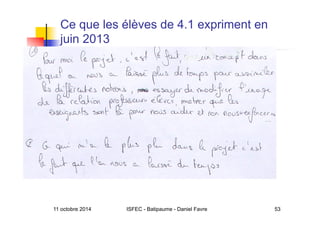 Ce que les élèves de 4.1 expriment en
juin 2013
Pour moi le projet, c'est le fait, un concept dans
lequel on nous a laissé plus de temps pour assimiler
les différentes notions, essayer de modifier l'image
de la relation professeur élèves, montrer que les
enseignants sont là pour nous aider et non nous
② Ce qui m'a le plus plu dans le projet c'est
le fait que l'on nous a laissé du temps
11 octobre 2014 ISFEC - Batipaume - Daniel Favre 53